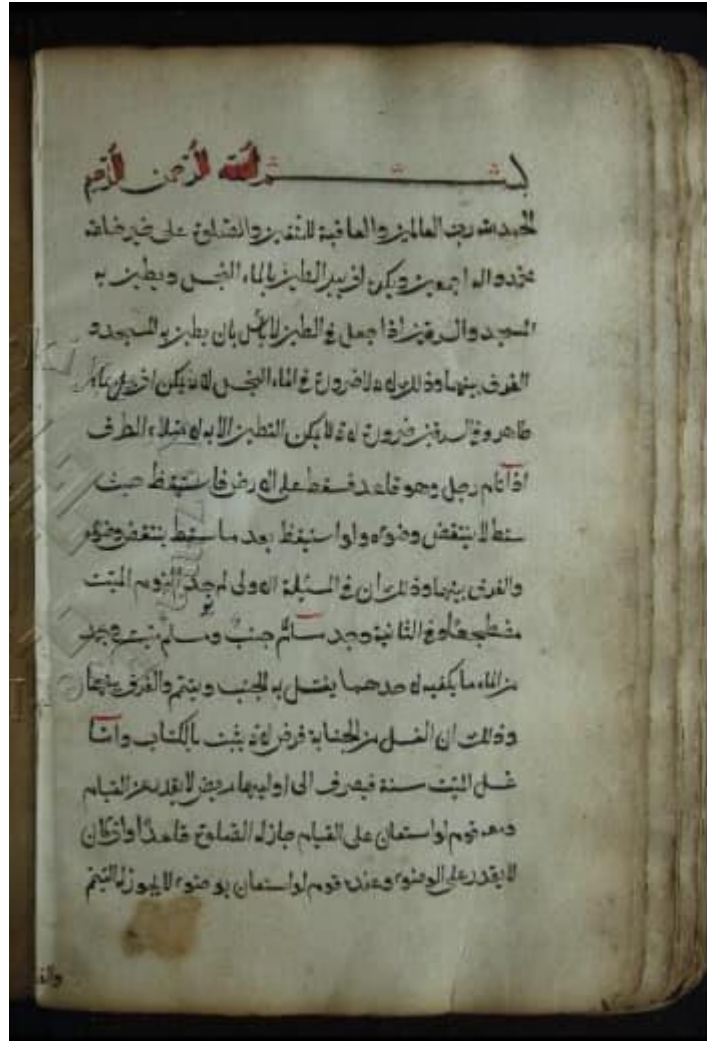 بسم الله الرحمن الرحيم
الحمد لله رب العالمين والعاقبة للمتقين والصلوة على خير خلقه
محمد واله اجمعين ويكره ان يبل الطين بالماء النجس ويطين به
المسجد والسرقين اذا جعل في الطين لا بأس بان يطين به المسجد و
الفرق بينهما وذلك لانه لا ضرورة في الماء النجس لانه يمكن ان بماء
طاهر وفي السرقين ضرورة لانه لا يمكن التطين الا به
اذا نام رجل وهو قاعد فسقط على الارض فاستيقظ حيث
سقط لا ينتقض وضوءه ولو استيقظ بعد ما سقط ينتقض وضوءه
والفرق بينهما وذلك ان في المسئلة الاولى لم يوجد النوم
مضطجعا وفي الثانية وجد جنب ميت وجد
من الماء ما يكفي لاحدهما يغتسل به الجنب وييمم والفرق بينهما
وذلك ان الغسل من الجنابة فرض لانه يثبت بالكتاب واما
غسل الميت سنة فيصرف الى اوليهما مريض لا يقدر عن القيام
ومعه قوم لو استعان على القيام جاز له الصلوة قاعدا وان كان
لا يقدر على الوضوء وعنده قوم لو استعان بوضوء لا يجوز له التيمم